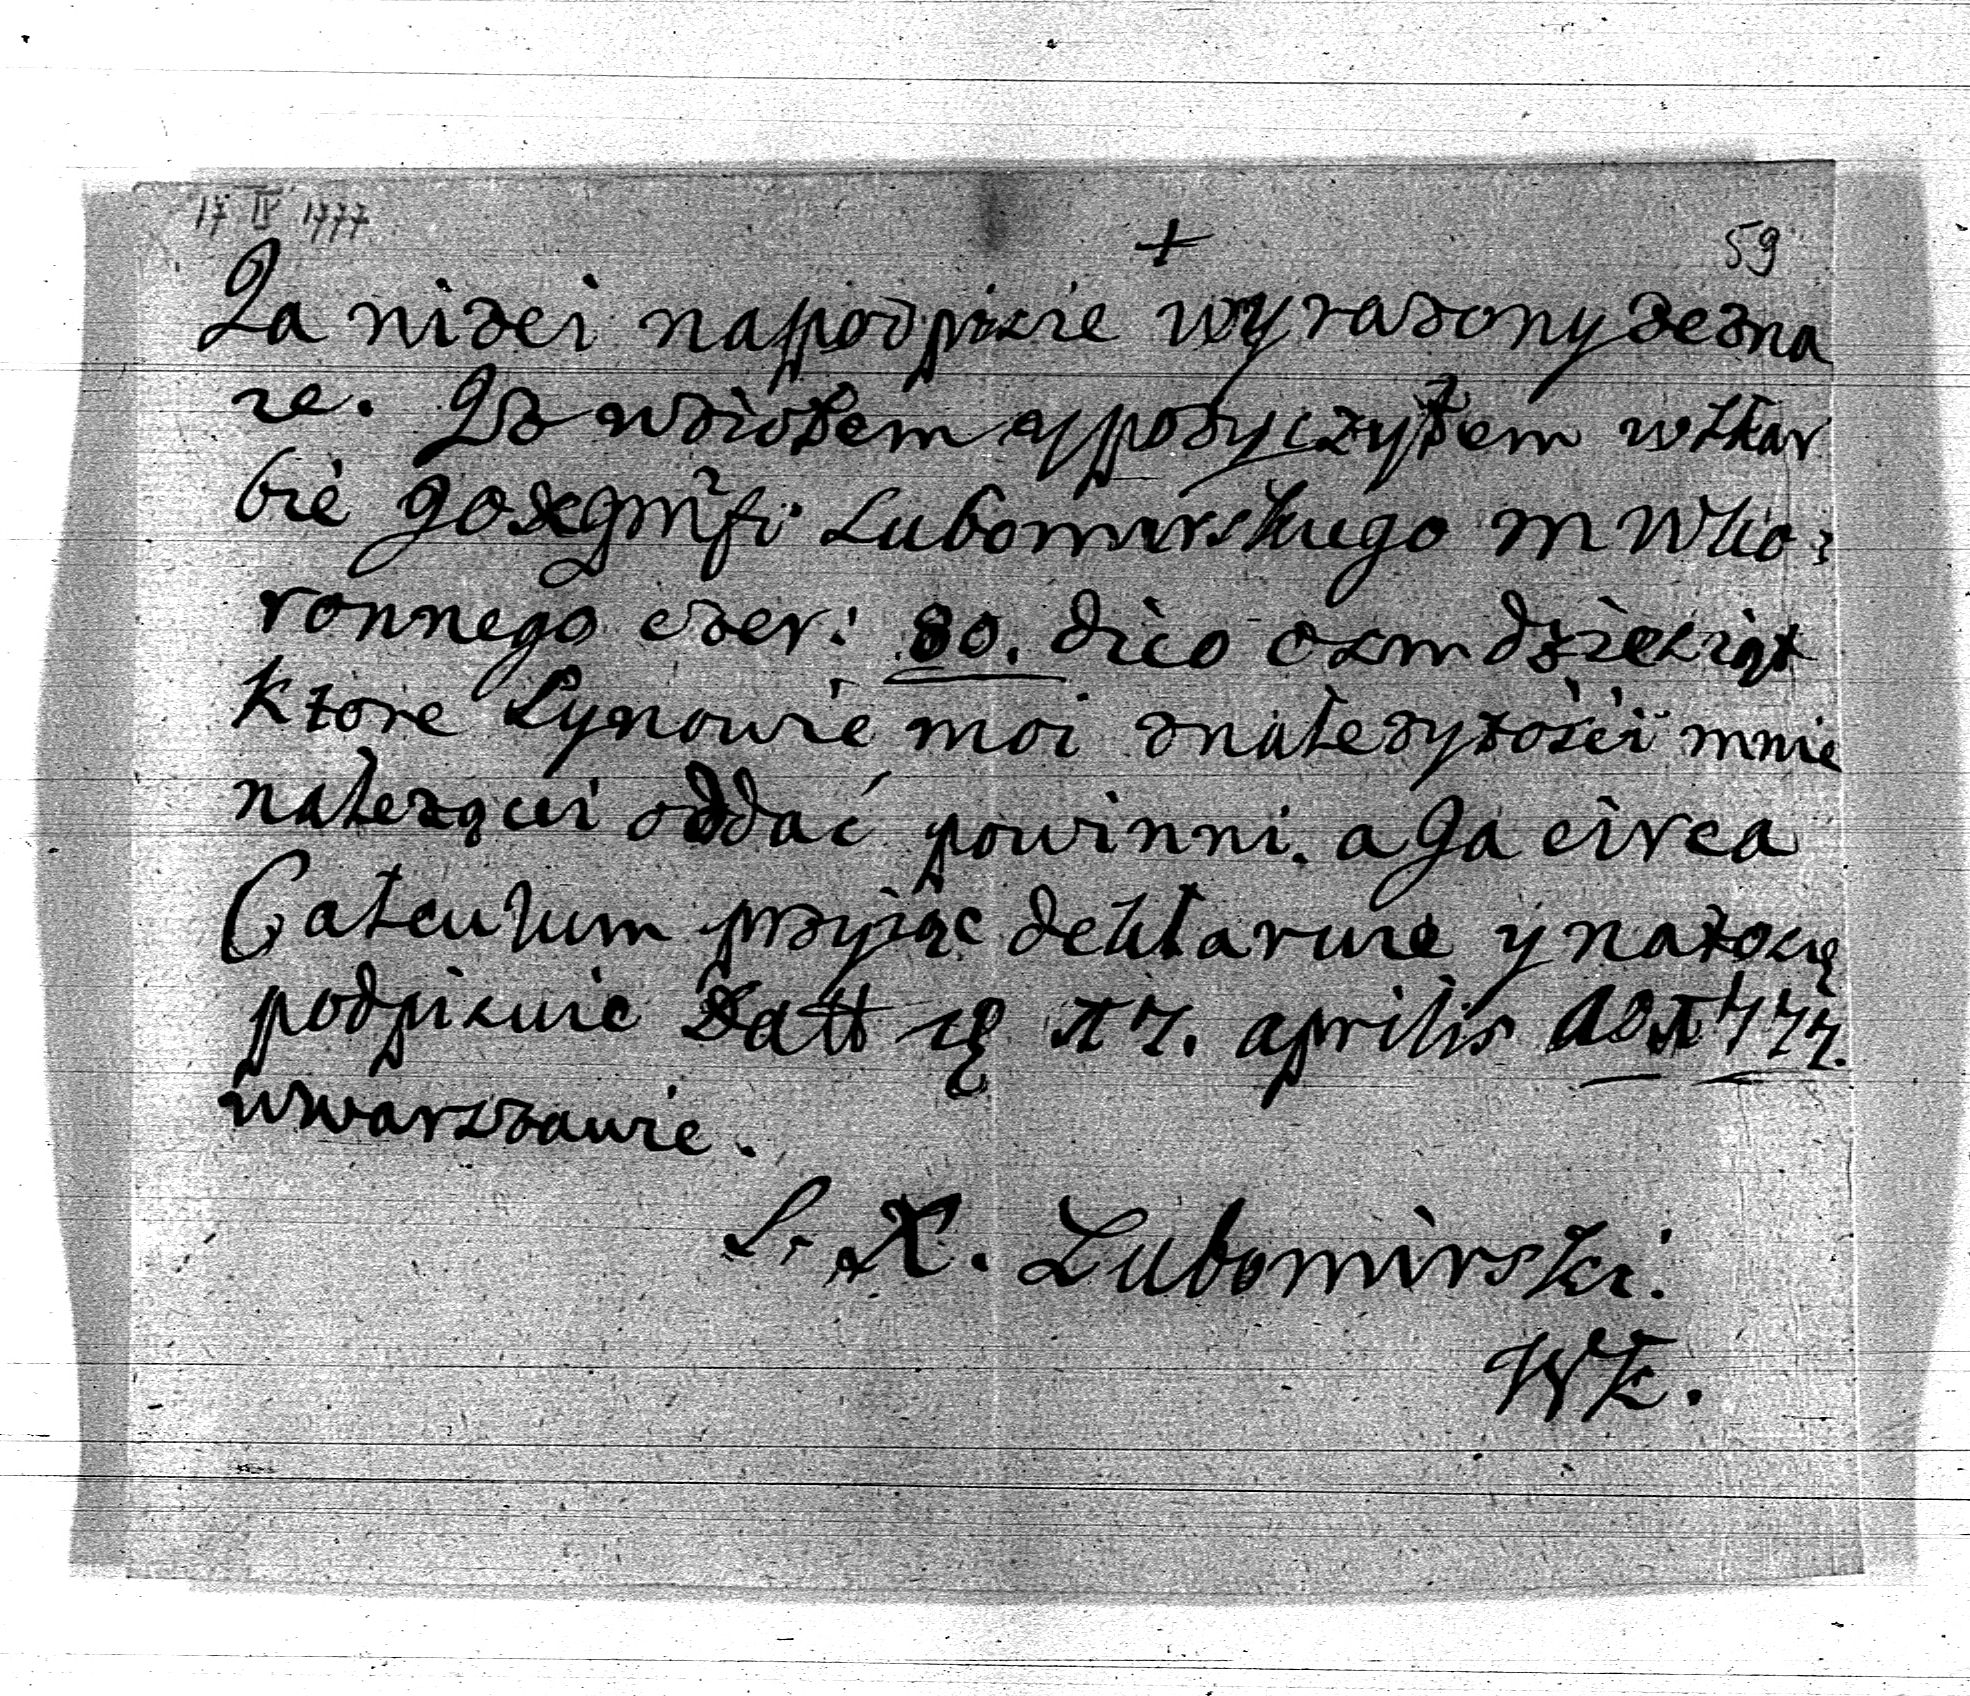 17 IV 1777
+
59
Ja nizei napodpisie wyrazony zezna
ie. Iz wziołem y pozyczyłem wskar
bie Lubomirskiego M W Ko:
ronnego czer: 80. dico osmdziesiąt
ktore Synowie moi znalezytości mnie
należącei oddać powinni. a Ja circa
Calculum przyiąc deklaruie y nato się
podpisuie Datt 17. aprilis AD 1777.
wwarszawie.
S. X. Lubomirski.
WK.